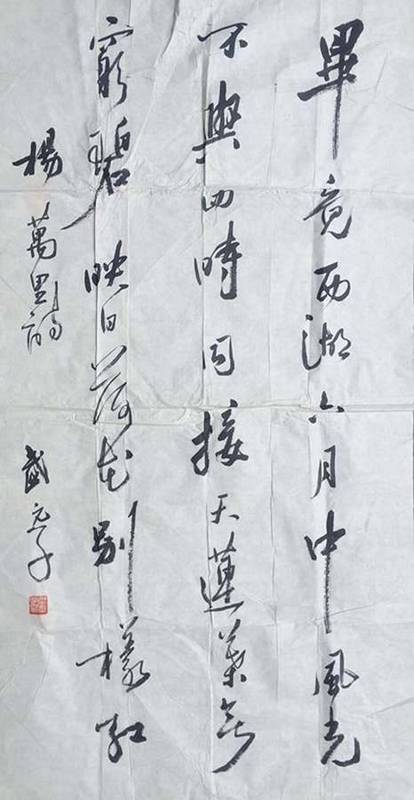 畢竟西湖六月中風光
不與四時同接天蓮葉無
窮碧映日荷花別樣紅
楊萬里詩
武